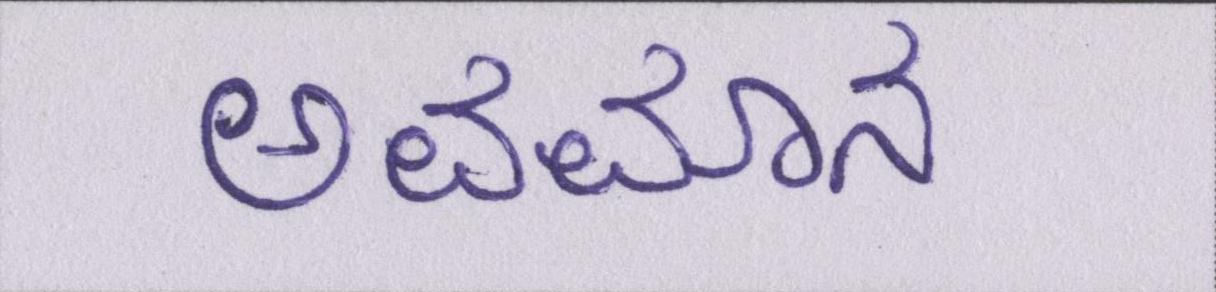 ಅವಮಾನ